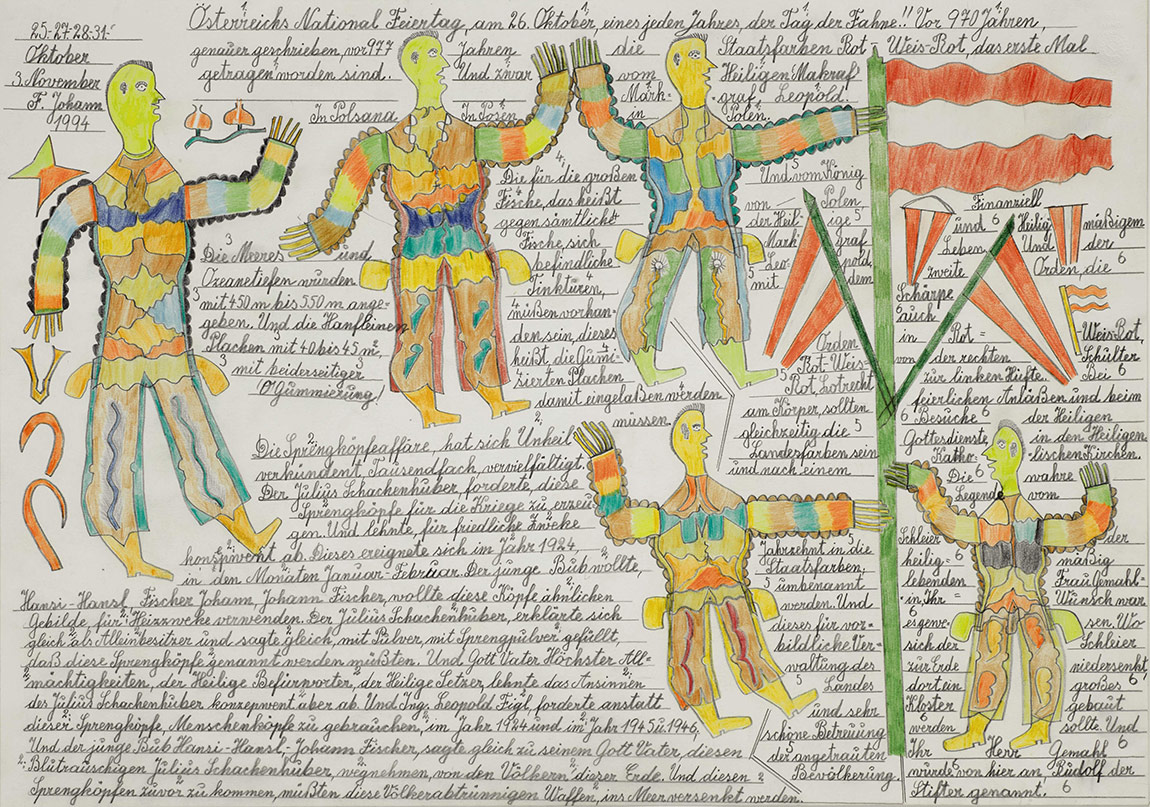 25.-27.-28.-31.
Oktober
3. November
F. Johann
1994
Österreichs National Feiertag, am 26. Oktober, eines jeden Jahres, der Tag der Fahne!! Vor 970 Jahren,
genauer geschrieben, vor 977 Jahren die Staatsfarben Rot-Weis-Rot, das erste Mal
getragen worden sind. Und zwar vom Heiligen Makraf
Mark= graf Leopold
In Polsana In Posen in Polen.
Die Meeres und
Ozeanetiefen wurden
mit 450 m bis 550 m ange-
geben. Und die Hanfleinen
Plachen mit 40 bis 45 m²,
mit beiderseitiger
Gummierung!
Die für die großen
Fische, das heißt
gegen sämtliche
Fische, sich
befindliche
Tinktüren,
müßen vorhan-
den sein, dieses
heißt die Gumi-
sierten Plachen
damit eingelaßen werden
müssen
Und vom König
von Polen
der Heil- ige
Mark graf
Leo- pold,
mit dem
Orden
Rot-Weis-
Rot, Lotrecht
am Körper, sollten
gleichzeitig die
Landerfarben sein
und nach einem
Jahrzehnt in die
Staatsfarben,
umbenannt
werden. Und
dieses für vor-
bildliche Ver-
waltung des
Landes
und sehr
schöne Betreuung
der angetrauten
Bevölkerung
Finanziell
und Heilig mäßigem
Leben Und der
zweite Orden, die
Schärpe
Raisch
in Rot= Weis-Rot,
von der rechten Schulter
zur linken Hüfte. Bei
feierlichen Anläßen und beim
Besuche der Heiligen
Gottesdienste in den Heiligen
Katho- lischen Kirchen.
Die wahre
Legende vom
Schleier der
heilig- mäßig
lebenden Frau Gemahl-
in Ihr= Wunsch war
es gewe- sen. Wo
sich der Schleier
zur Erde niedersenkt
dort ein großes
Kloster gebaut
werden sollte. Und
Ihr Herr Gemahl
wurde von hier an, Rudolf der
Stifter genannt.
Die Sprengköpfeaffäre, hat sich Unheil
verkündent, Tausendfach, vervielfältigt.
Der Julius Schachenhuber, forderte, diese
Sprengköpfe für die Kriege zu erzeu-
gen. Und lehnte, für friedliche Zwecke
konsequent ab. Dieses ereignete sich im Jahr 1924,
in den Monaten Januar-Februar. Der junge Bub wollte,
Hansi-Hansl, Fischer Johann, Johann Fischer, wollte diese Köpfe ähnlichen
Gebilde, für Heizzweke verwenden. Der Julius Schachenhuber, erklärte sich
gleich als Alleinbesitzer und sagte gleich, mit Pulver mit Sprengpulver gefüllt,
daß diese Sprengköpfe genannt werden müßten. Und Gott Vater Höchster All=
mächtigkeiten, der Heilige Befürworter, der Heilige Setzer, lehnte das Ansinnen
des Julius Schachenhuber konzepwent aber ab. Und Ing. Leopold Figl, forderte anstatt
dieser Sprengköpfe, Menschenköpfe zu gebrauchen, im Jahr 1924 und im Jahr 1945 u. 1946.
Und der junge Bub Hansi-Hansl,-Johann Fischer, sagte gleich zu seinem Gott Vater, diesen
Blutrauschigen Julius Schachenhuber, wegnehmen, von den Völkern dieser Erde. Und diesen
Sprengköpfen zuvor zu kommen, müßten diese Völkerabtrünnigen Waffen, ins Meer versenket werden.